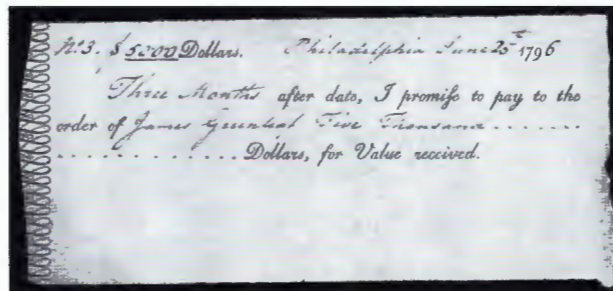 No. 3. $ 5000 Dollars. Philadelphia June 25th 1796
Three Months after date, I promiſe to pay to the
order of James Greenleaf Five Thousand . . . . . . .
. . . . . . . . . . . Dollars, for Value received.